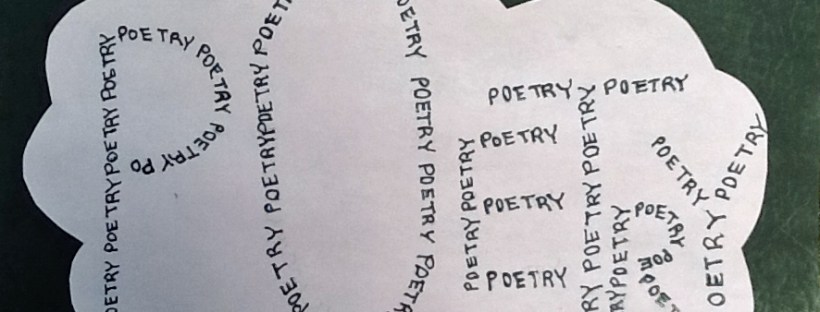 OETRY POETRY POETRY POETRY
POETRY POETRY POETRY PO
POETRY POETRYPOETRY POET
OETRY POETRY POETRY POETR
POETRY POETRY
POETRY
POETRY
POETRY
POETRY POETRY
RY POETRY POETRY
RYPOETRY
POETRY POE
POET
POETRY
OETRY POETRY